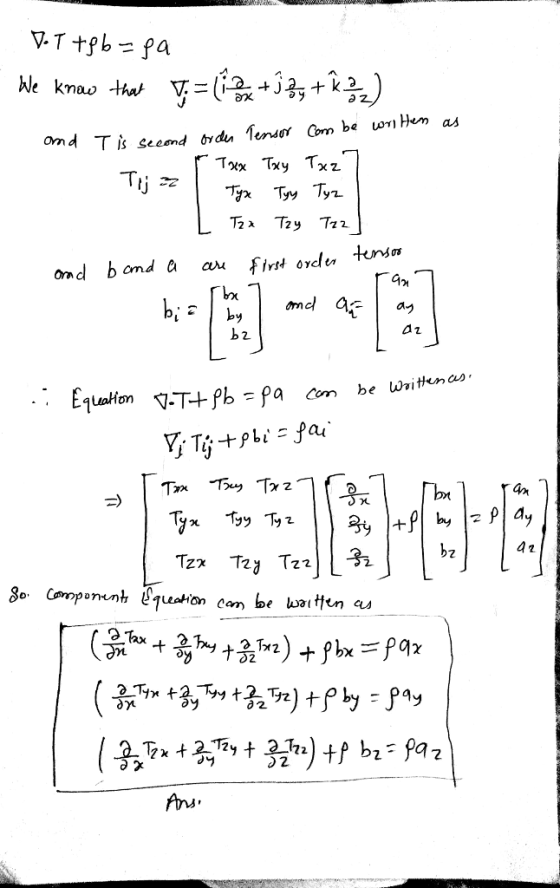 ∇·T + ρb = ρa
We know that ∇j = (î ∂/∂x + ĵ ∂/∂y + k̂ ∂/∂z)
and T is second order Tensor Can be written as
Tij = [ Txx Txy Txz
Tyx Tyy Tyz
Tzx Tzy Tzz ]
and b and a are first order tensor
bi = [ bx by bz ] and ai = [ ax ay az ]
∴ Equation ∇·T + ρb = ρa can be written as.
∇j Tij + ρbi = ρai
⇒ [ Txx Txy Txz
Tyx Tyy Tyz
Tzx Tzy Tzz ] [ ∂/∂x ∂/∂y ∂/∂z ] + ρ [ bx by bz ] = ρ [ ax ay az ]
So. Components Equation can be written as
(∂/∂x Txx + ∂/∂y Txy + ∂/∂z Txz) + ρbx = ρax
(∂/∂x Tyx + ∂/∂y Tyy + ∂/∂z Tyz) + ρby = ρay
(∂/∂x Tzx + ∂/∂y Tzy + ∂/∂z Tzz) + ρ bz = ρaz
Ans.